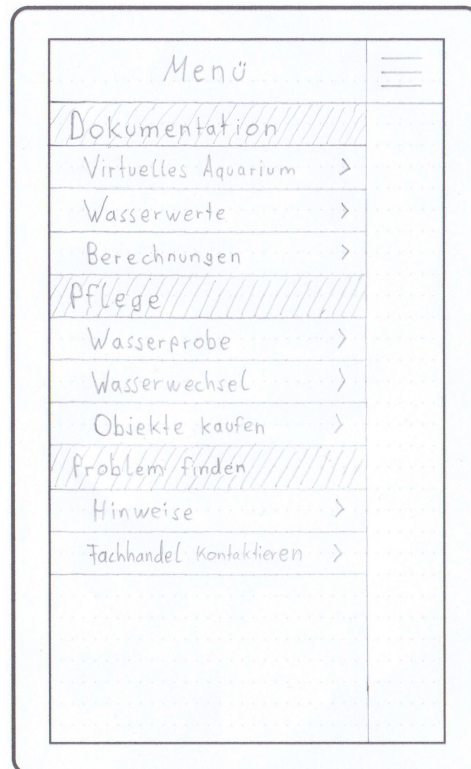 Menü
Dokumentation
Virtuelles Aquarium >
Wasserwerte >
Berechnungen >
Pflege
Wasserprobe >
Wasserwechsel >
Objekte kaufen >
Problem finden
Hinweise >
Fachhandel Kontaktieren >